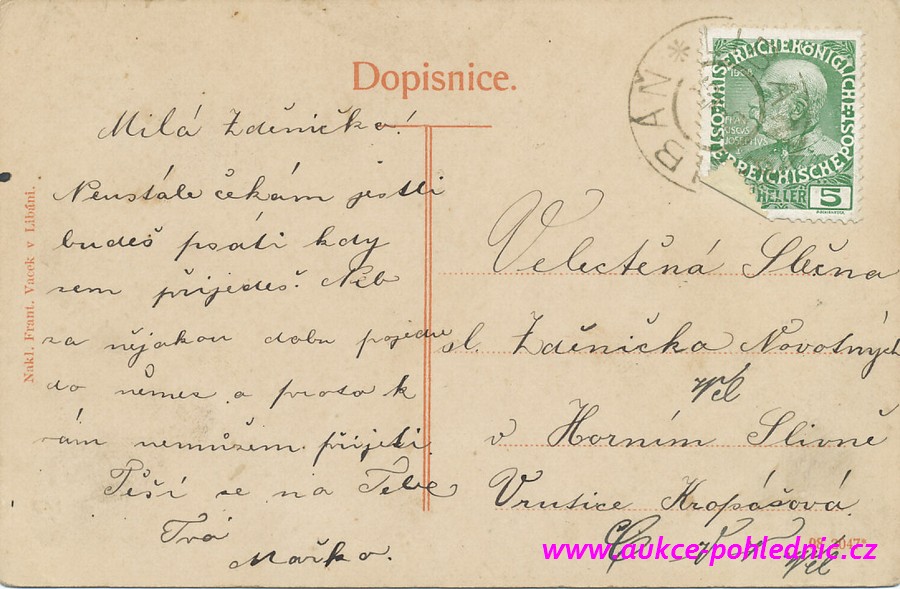 Dopisnice.
Milá Zděničko!
Neustále čekám jestli
budeš psáti kdy
sem přijedeš. Neb
za nějakou dobu pojedu
do němec a proto k
vám nemůžem přijeti.
Těší se na Tebe
Tvá
Mařka.
Velectěná Slečna
sl. Zděnička Novotných
v Horním Slivně
Vrutice Kropáčová
Nakl. Frant. Vacek v Libáni.
BÁŇ *
KAISERLICHE KÖNIGLICHE
ÖSTERREICHISCHE POST
FRAN
ISCUS
JOSEPHVS
HELLER 5
2047*
www.aukce-pohlednic.cz